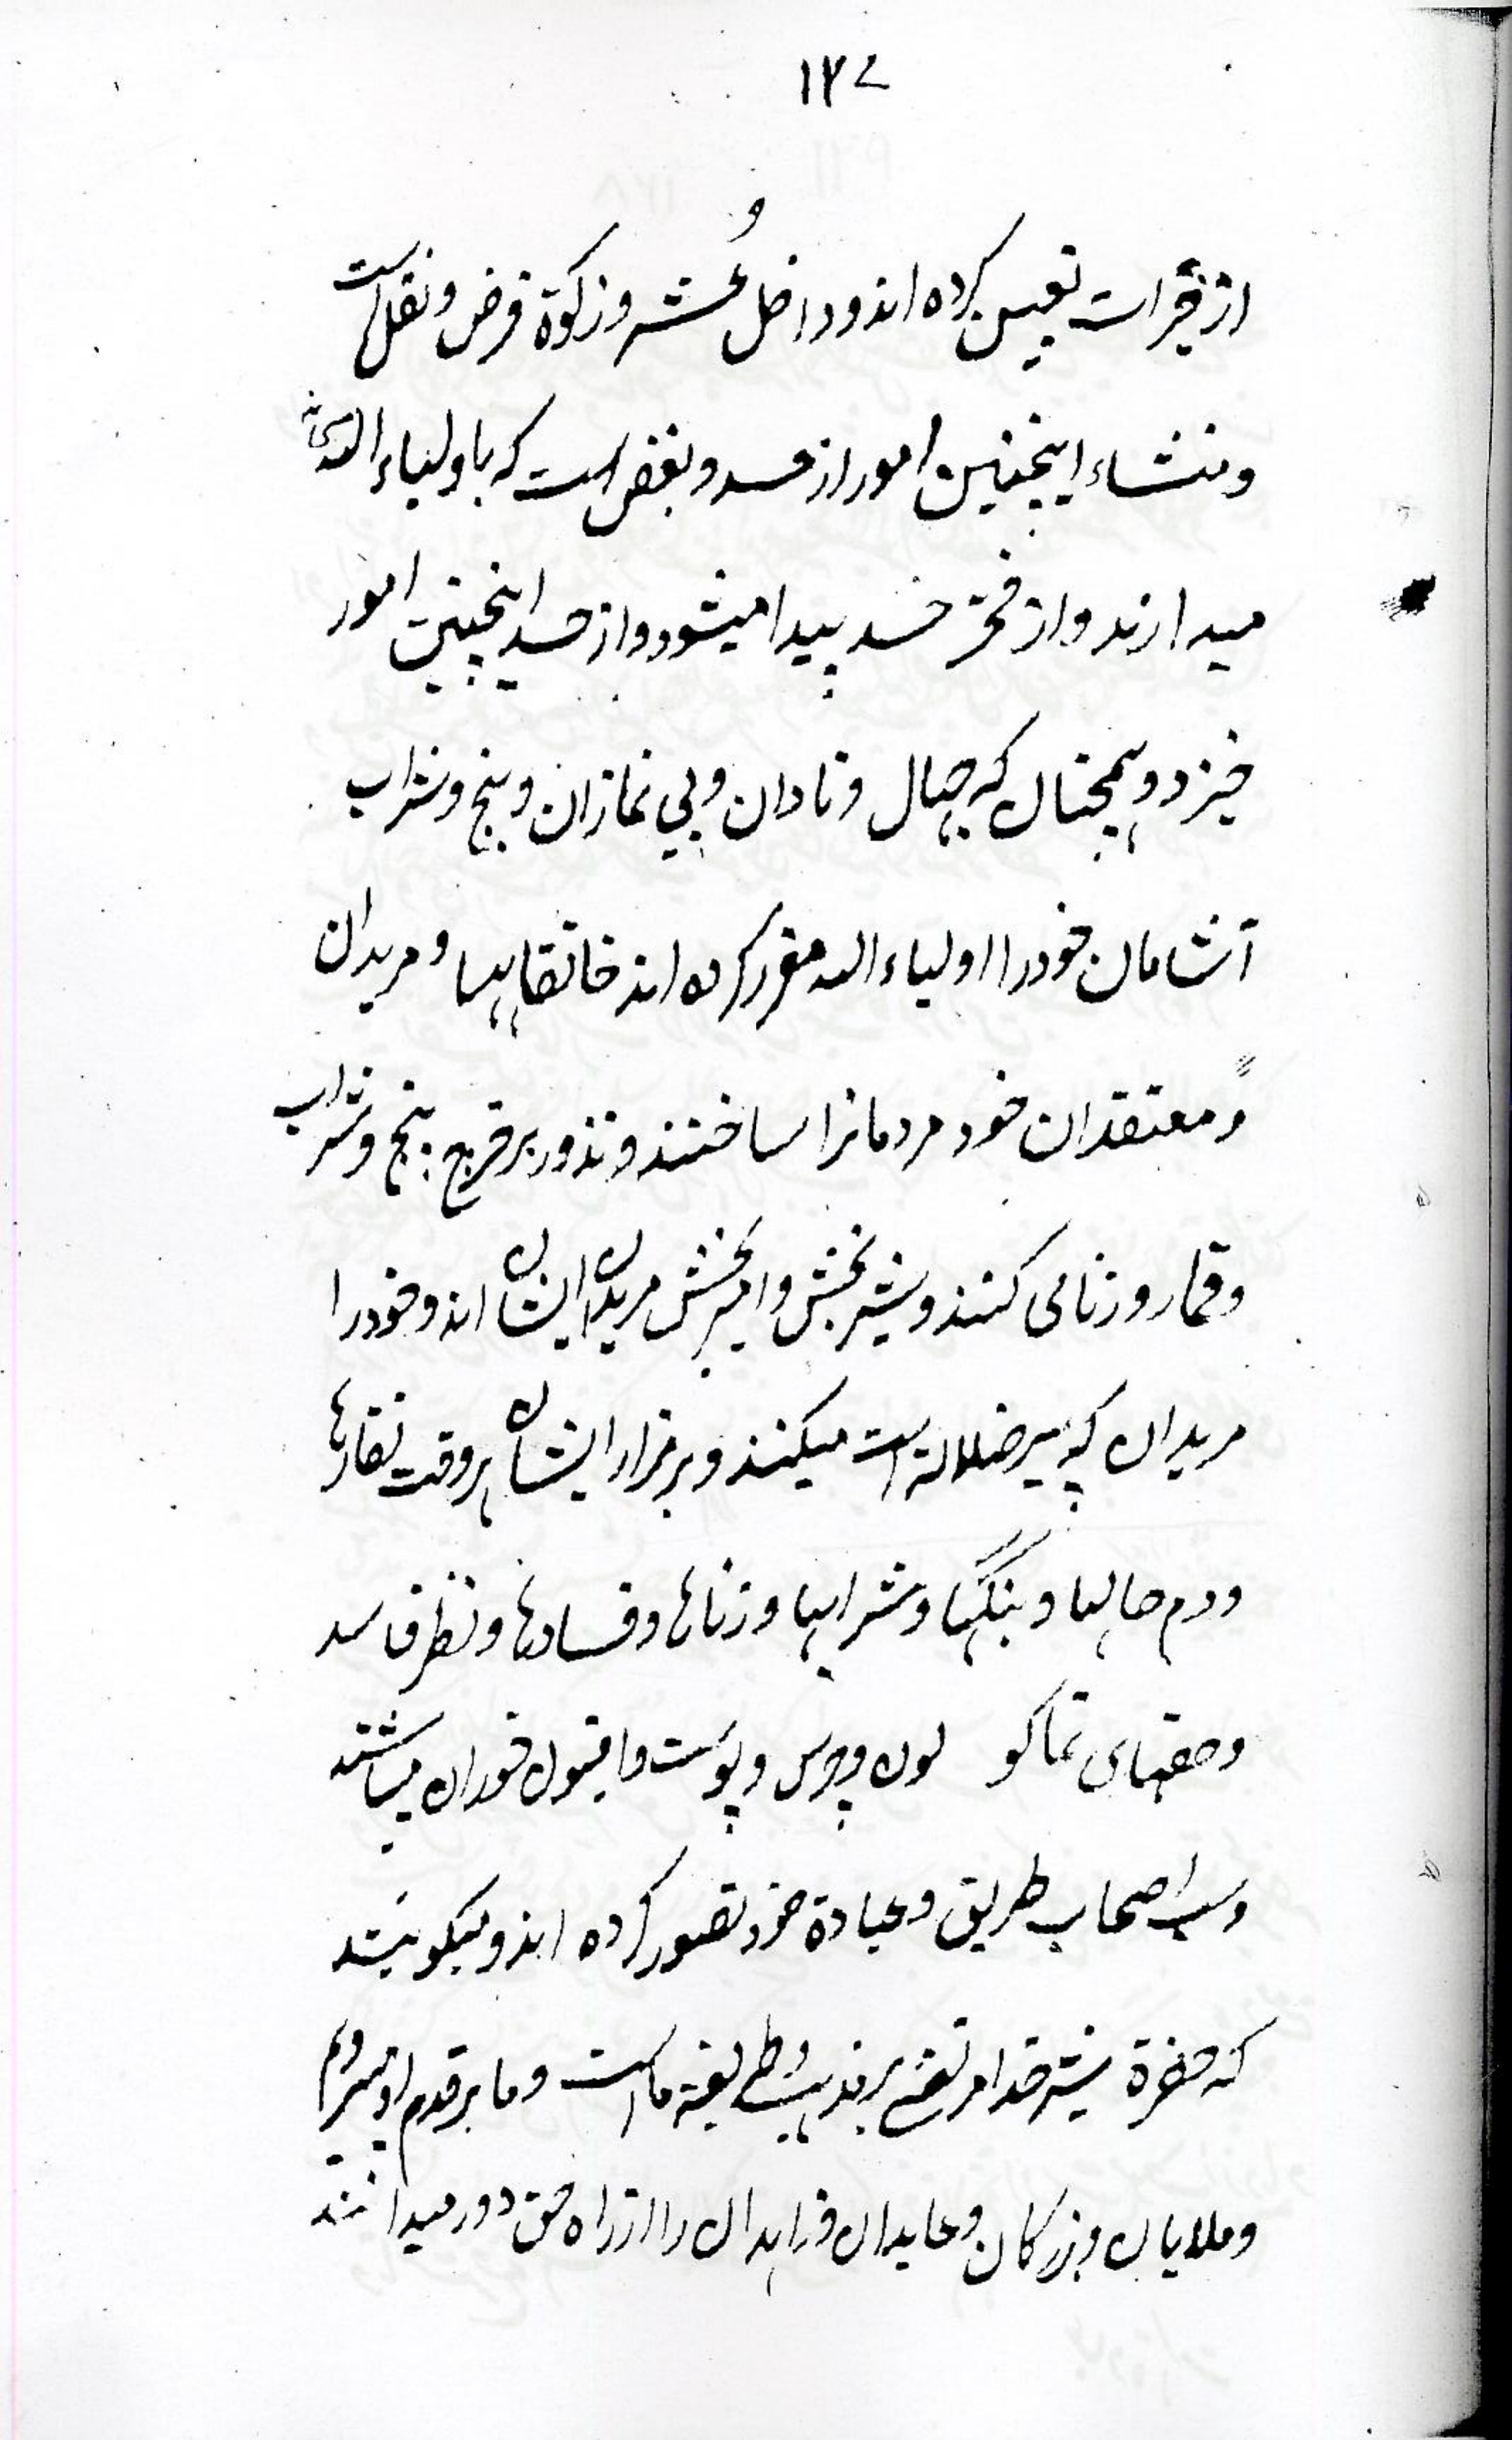 ۱۲۷
از خیرات تعین کرده اند و داخل عُشر و زکوة فرض و نفل است
و منشاء اینچنین امور از حسد و بغض است که با ولیاء الله
میدارند و از فخر حسد پیدا میشود و از حسد اینچنین امور
خیزد و همچنان که جهال و نادان و بی نمازان و بنج و شراب
آشامان خود را اولیاء الله مقرر کرده اند خانقاهها و مریدان
و معتقدان خود مردمانرا ساختند و نذور بر خرج بنج و شراب
و قمار و زنا می کنند و شیر بخش و امیر بخش مریدان ایشان اند و خود را
مریدان که پیر ضلالة است میکنند و بر مزار ایشان هر وقت نقارها
و دم حالها و بنگیها و شرابیها و زناها و فسادها و نظر فاسد
و حقهای تماکو لون و چرس و پوست و افیون خوران میباشند
و سب اصحاب طریق و عبادة خود تصور کرده اند و میگویند
که حضرة شیر خدا مرتضی بر مذهب و طریقه ما است و ما بر قدم او میرویم
و ملایان و بزرگان و عابدان و زاهدان را از راه حق دور میدانند